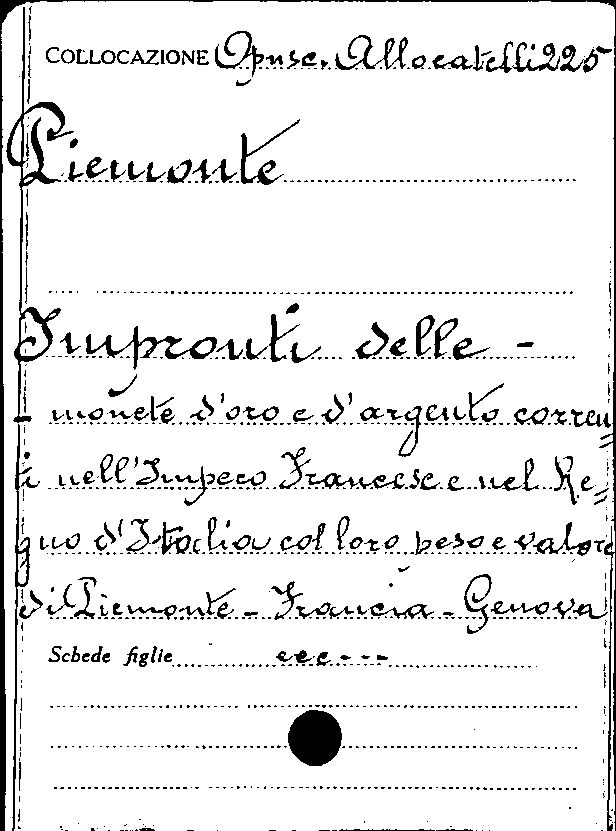 COLLOCAZIONE Opusc. Allocatelli 225
Piemonte
Impronti delle -
- monete d'oro e d'argento corren=
ti nell'Impero Francese e nel Re=
gno d'Italia col loro peso e valore
di Piemonte - Francia - Genova
Schede figlie ecc---